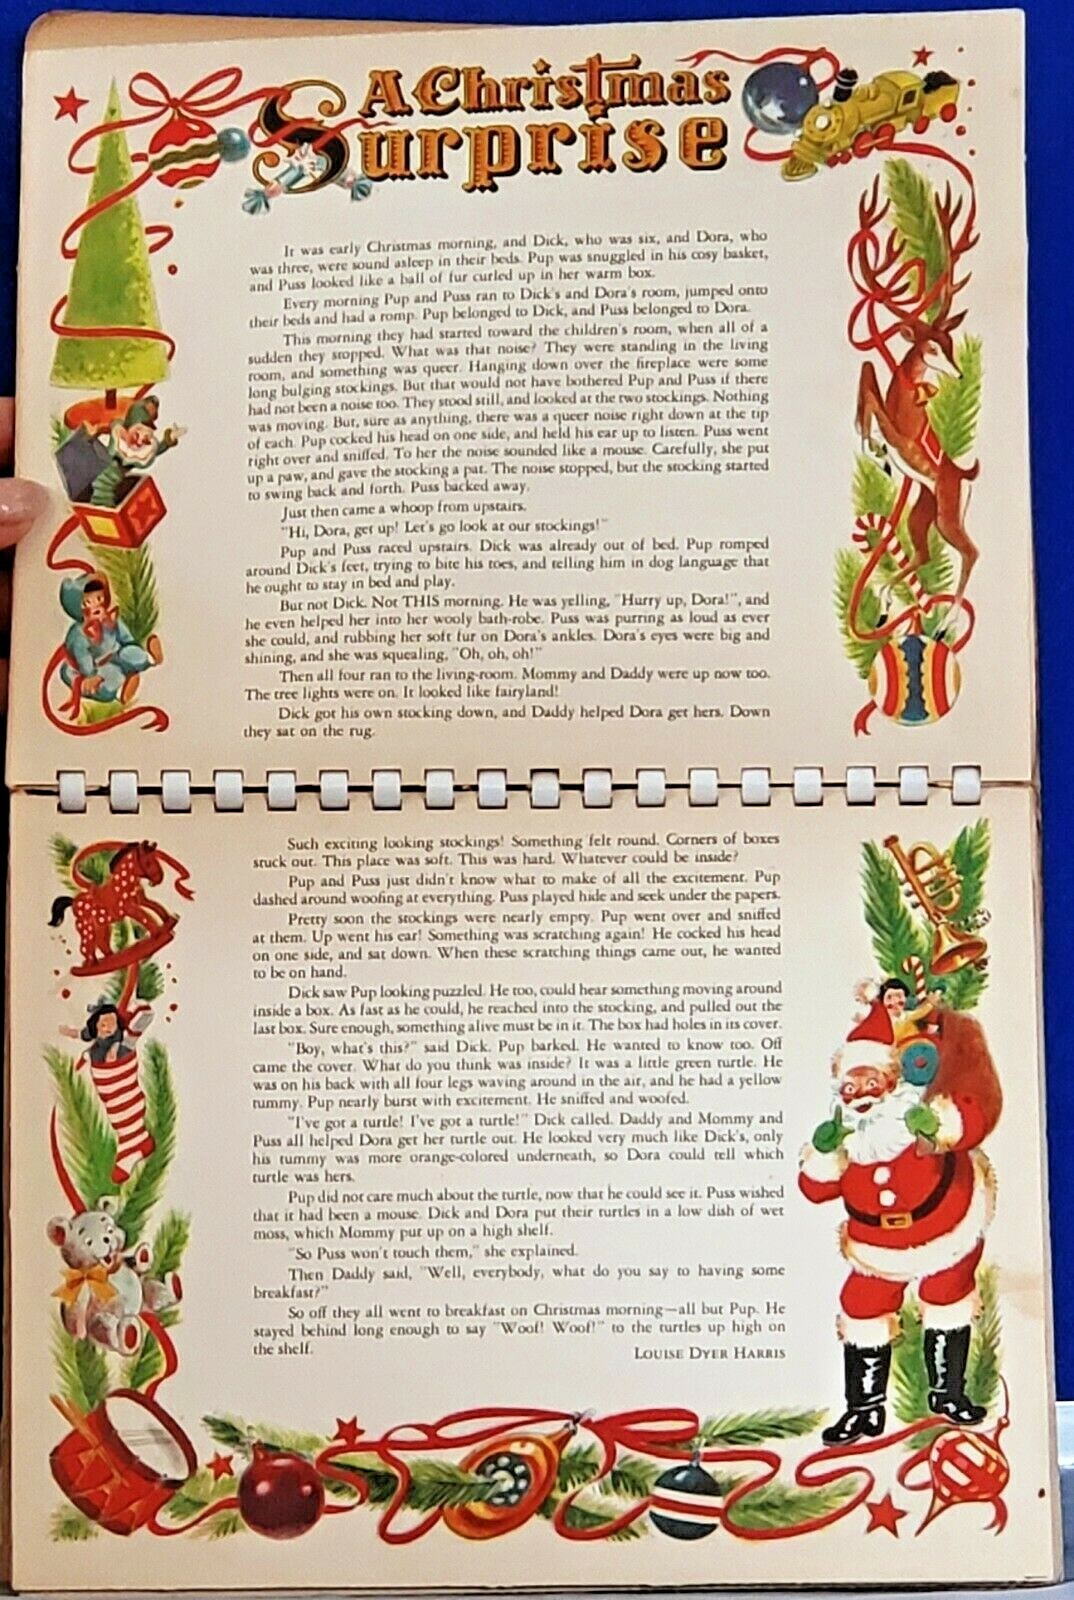 A Christmas
Surprise
It was early Christmas morning, and Dick, who was six, and Dora, who
was three, were sound asleep in their beds. Pup was snuggled in his cosy basket,
and Puss looked like a ball of fur curled up in her warm box.
Every morning Pup and Puss ran to Dick's and Dora's room, jumped onto
their beds and had a romp. Pup belonged to Dick, and Puss belonged to Dora.
This morning they had started toward the children's room, when all of a
sudden they stopped. What was that noise? They were standing in the living
room, and something was queer. Hanging down over the fireplace were some
long bulging stockings. But that would not have bothered Pup and Puss if there
had not been a noise too. They stood still, and looked at the two stockings. Nothing
was moving. But, sure as anything, there was a queer noise right down at the tip
of each. Pup cocked his head on one side, and held his ear up to listen. Puss went
right over and sniffed. To her the noise sounded like a mouse. Carefully, she put
up a paw, and gave the stocking a pat. The noise stopped, but the stocking started
to swing back and forth. Puss backed away.
Just then came a whoop from upstairs.
"Hi, Dora, get up! Let's go look at our stockings!"
Pup and Puss raced upstairs. Dick was already out of bed. Pup romped
around Dick's feet, trying to bite his toes, and telling him in dog language that
he ought to stay in bed and play.
But not Dick. Not THIS morning. He was yelling, "Hurry up, Dora!", and
he even helped her into her wooly bath-robe. Puss was purring as loud as ever
she could, and rubbing her soft fur on Dora's ankles. Dora's eyes were big and
shining, and she was squealing, "Oh, oh, oh!"
Then all four ran to the living-room. Mommy and Daddy were up now too.
The tree lights were on. It looked like fairyland!
Dick got his own stocking down, and Daddy helped Dora get hers. Down
they sat on the rug.
Such exciting looking stockings! Something felt round. Corners of boxes
stuck out. This place was soft. This was hard. Whatever could be inside?
Pup and Puss just didn't know what to make of all the excitement. Pup
dashed around woofing at everything. Puss played hide and seek under the papers.
Pretty soon the stockings were nearly empty. Pup went over and sniffed
at them. Up went his ear! Something was scratching again! He cocked his head
on one side, and sat down. When these scratching things came out, he wanted
to be on hand.
Dick saw Pup looking puzzled. He too, could hear something moving around
inside a box. As fast as he could, he reached into the stocking, and pulled out the
last box. Sure enough, something alive must be in it. The box had holes in its cover.
"Boy, what's this?" said Dick. Pup barked. He wanted to know too. Off
came the cover. What do you think was inside? It was a little green turtle. He
was on his back with all four legs waving around in the air, and he had a yellow
tummy. Pup nearly burst with excitement. He sniffed and woofed.
"I've got a turtle! I've got a turtle!" Dick called. Daddy and Mommy and
Puss all helped Dora get her turtle out. He looked very much like Dick's, only
his tummy was more orange-colored underneath, so Dora could tell which
turtle was hers.
Pup did not care much about the turtle, now that he could see it. Puss wished
that it had been a mouse. Dick and Dora put their turtles in a low dish of wet
moss, which Mommy put up on a high shelf.
"So Puss won't touch them," she explained.
Then Daddy said, "Well, everybody, what do you say to having some
breakfast?"
So off they all went to breakfast on Christmas morning—all but Pup. He
stayed behind long enough to say "Woof! Woof!" to the turtles up high on
the shelf.
LOUISE DYER HARRIS